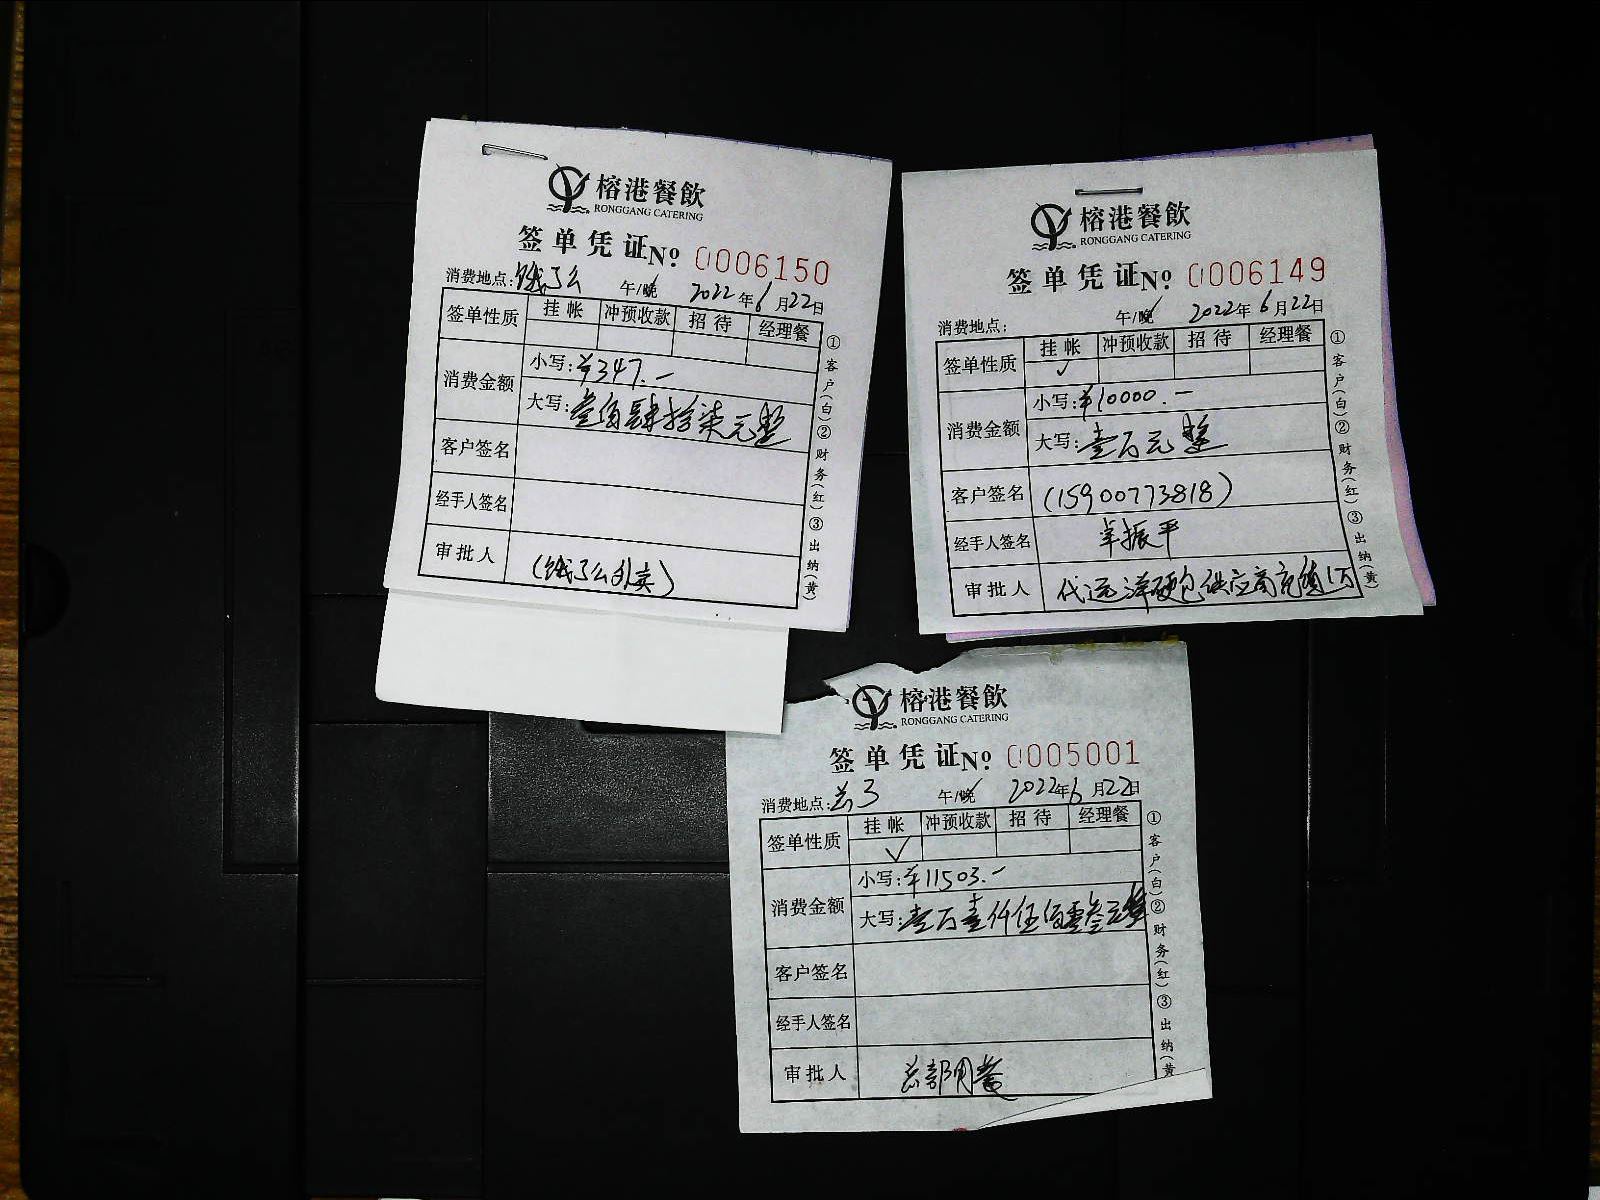 榕港餐飲
RONGGANG CATERING
签单凭证 No 0006150
消费地点: 饿了么 午/晚 2022年6月22日
签单性质 挂帐 冲预收款 招待 经理餐
消费金额 小写: ¥347.-
大写: 叁佰肆拾柒元整
客户签名
经手人签名
审批人 (饿了么外卖)
①客户(白)②财务(红)③出纳(黄)
榕港餐飲
RONGGANG CATERING
签单凭证 No 0006149
消费地点: 午/晚 2022年6月22日
签单性质 挂帐 冲预收款 招待 经理餐
√
消费金额 小写: ¥10000.-
大写: 壹万元整
客户签名 (15900773818)
经手人签名 振平
审批人 代远洋硬包供应商充值1万
①客户(白)②财务(红)③出纳(黄)
榕港餐飲
RONGGANG CATERING
签单凭证 No 0005001
消费地点: 总3 午/晚 2022年6月22日
签单性质 挂帐 冲预收款 招待 经理餐
√
消费金额 小写: ¥11503.-
大写: 壹万壹仟伍佰零叁元整
客户签名
经手人签名
审批人 总部用餐
①客户(白)②财务(红)③出纳(黄